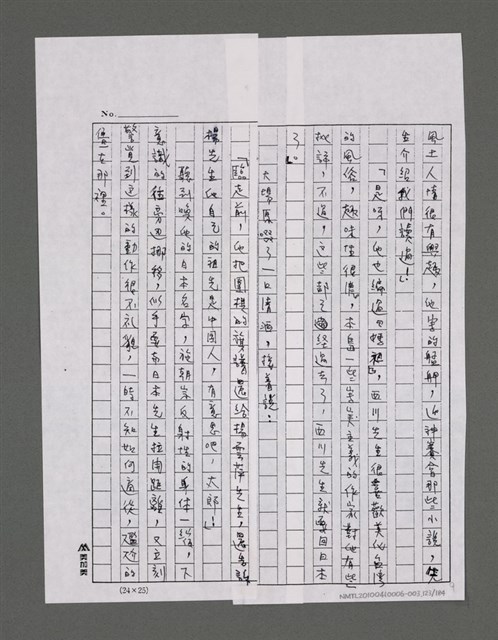 No.
風土人情很有興趣，他寫的艋舺，迎神賽會那些小說，先
生介紹我們讀過！」
「是呀，他也編過『媽祖』，西川先生很喜歡美化台灣
的風俗，趣味性很濃，本島一些寫實主義的作家對他有些
批評，不過，這些都已經過去了，西川先生就要回日本
了。」
大場原啜了一口清酒，接着說：
「臨走前，他把團
旗請還給楊雲萍先生，還告訴
楊先生他自己的祖先是中國人，有意思吧，大郎！」
聽到喚他的日本名字，施朝宗反射性的身体一
，下
意識的往旁邊挪移，似乎要和日本先生拉開距離，又立刻
警覺到這樣的動作很不礼貌，一時不知如何適從，尷尬的
僵在那裡。
(24×25)
NMTL20100410006-003